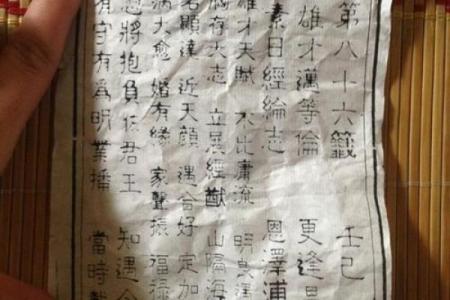 第八十六籤 壬己
雄才邁等倫 更逢日
素日經綸志 恩澤浦
雄才天賦 不比庸流 明良
存大志 立展經猷 山隔海
名顯達 近天顏 遇合好 定加
病大愈 婚有緣 家聲振 福祿
將抱負佐君王 知遇合
有守有為明業播 當時